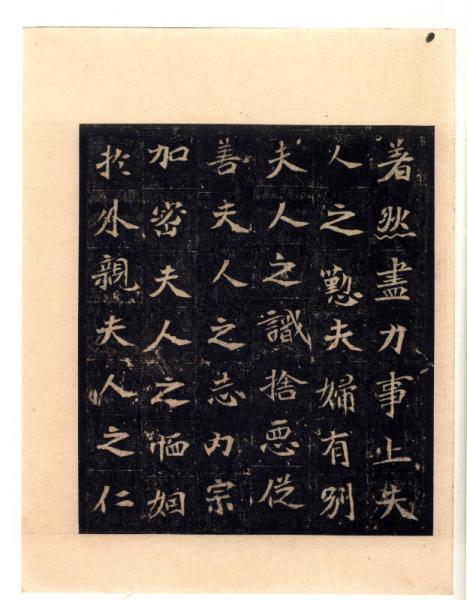 著然盡力事上失
人之懃夫婦有別
夫人之識捨惡從
善夫人之志內宗
加密夫人之恤姻
於外親夫人之仁